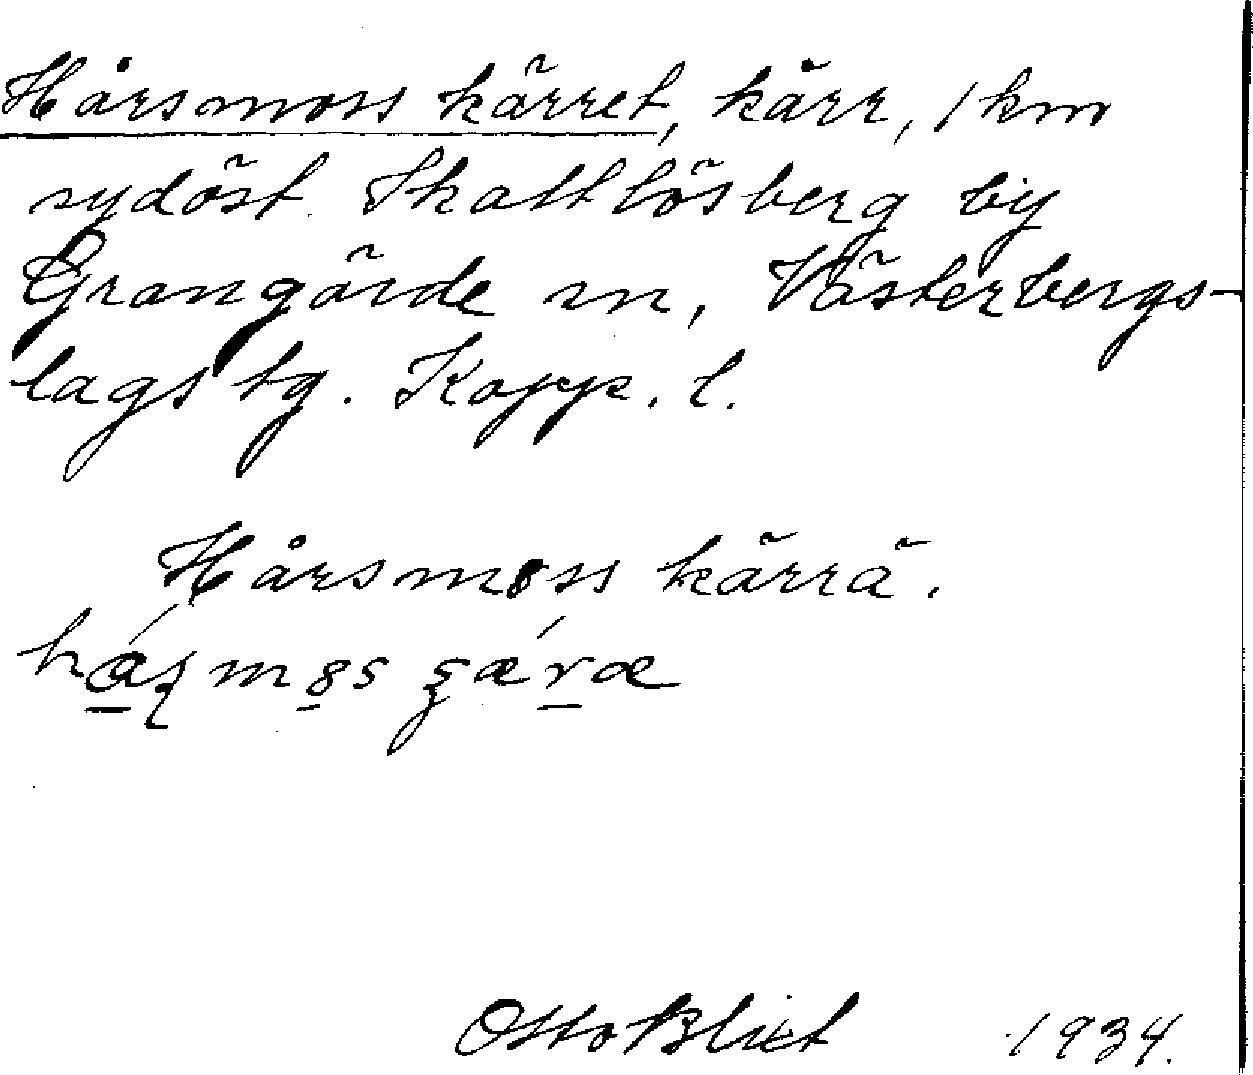 Hårsmoss kärret, kärr, 1 km
sydöst Skattlösberg by
Grangärde sn, Västerbergs-
lags tg. Kopp. l.
Hårsmoss kärrä.
Otto Blixt 1934.